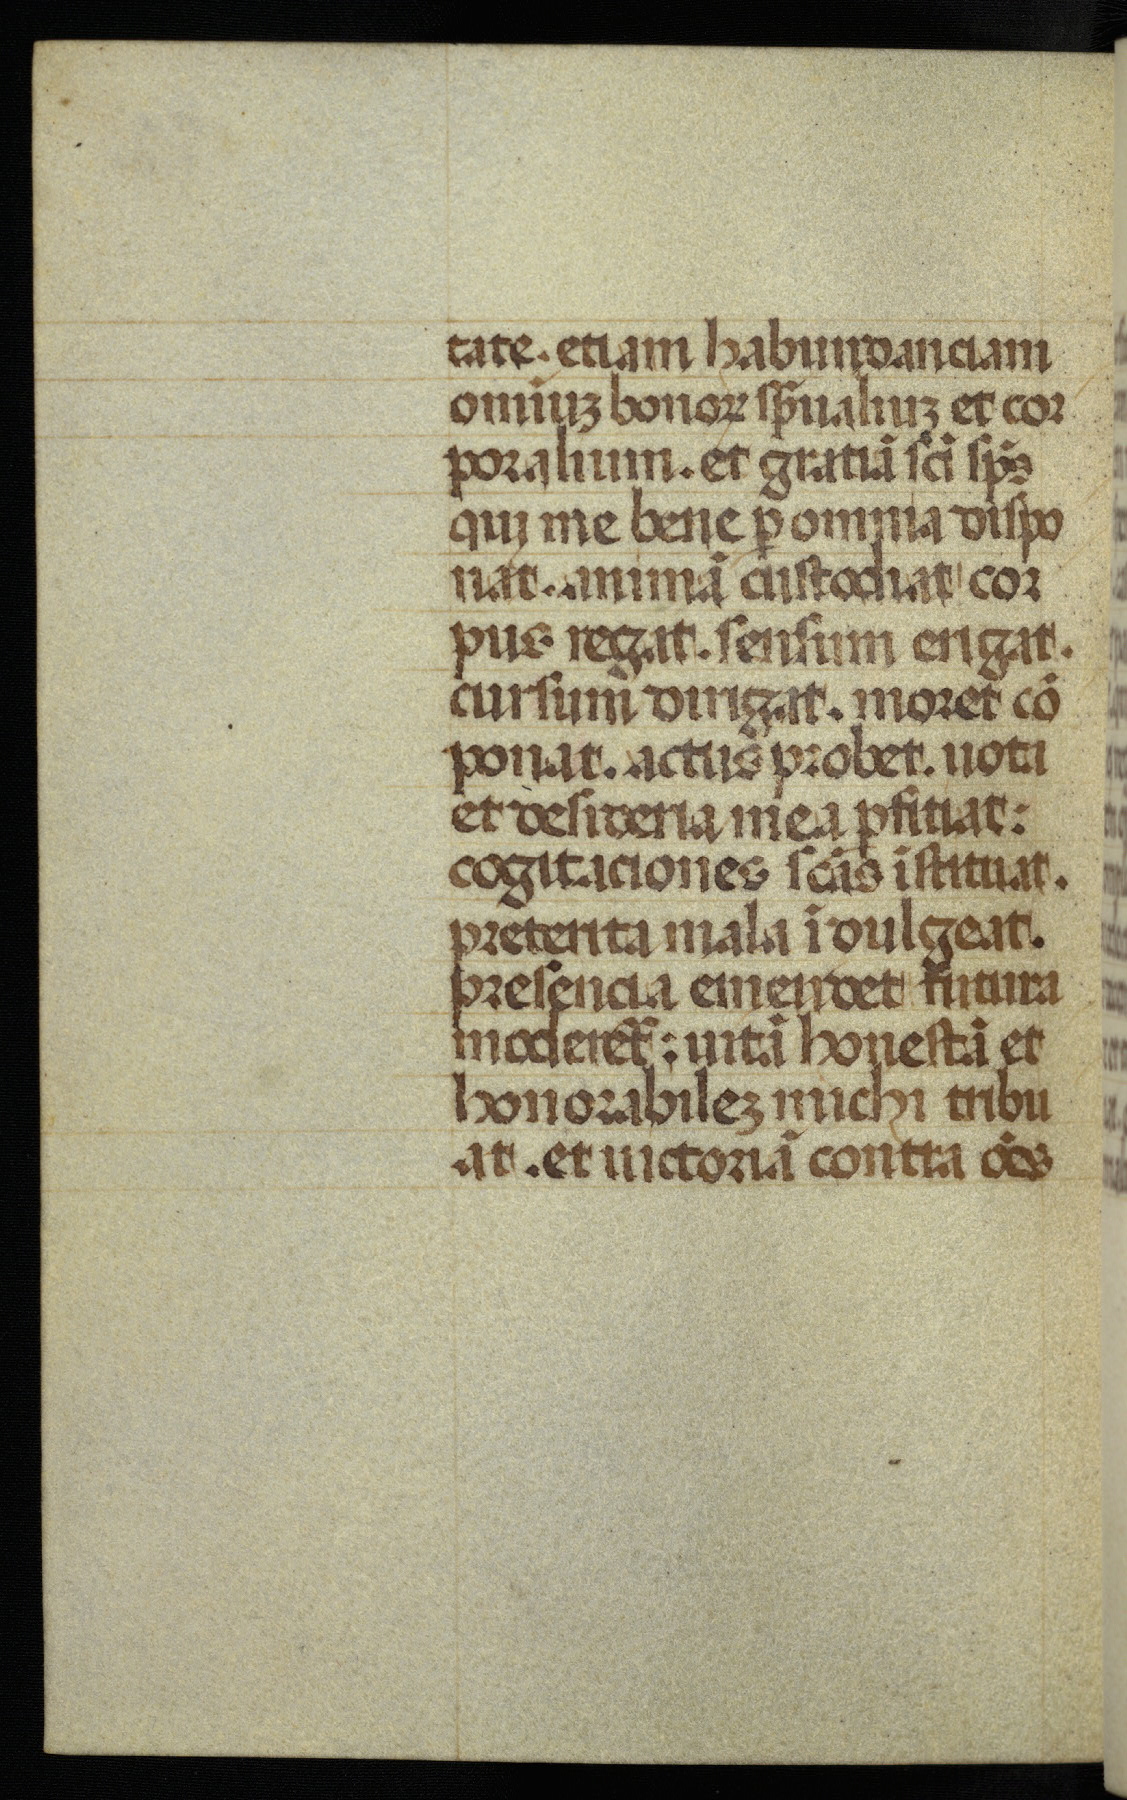 tate. etiam habundanciam
omiuz bonoꝝ sp̃ualiuz et cor
poralium. et gratiā sc̄i sp̄s
qui me bene ꝑ omnia dispo
nat. animā custodiat cor
pus regat. sensum erigat.
cursum dirigat. moret cō
ponat. actus probet. uota
et desideria mea ꝑfitiat:
cogitaciones sc̄as īstituat.
preterita mala īdulgeat.
presencia emendet futura
moderet: uitā honestā et
honorabilez michi tribu
at. et uictoriā contra oēs